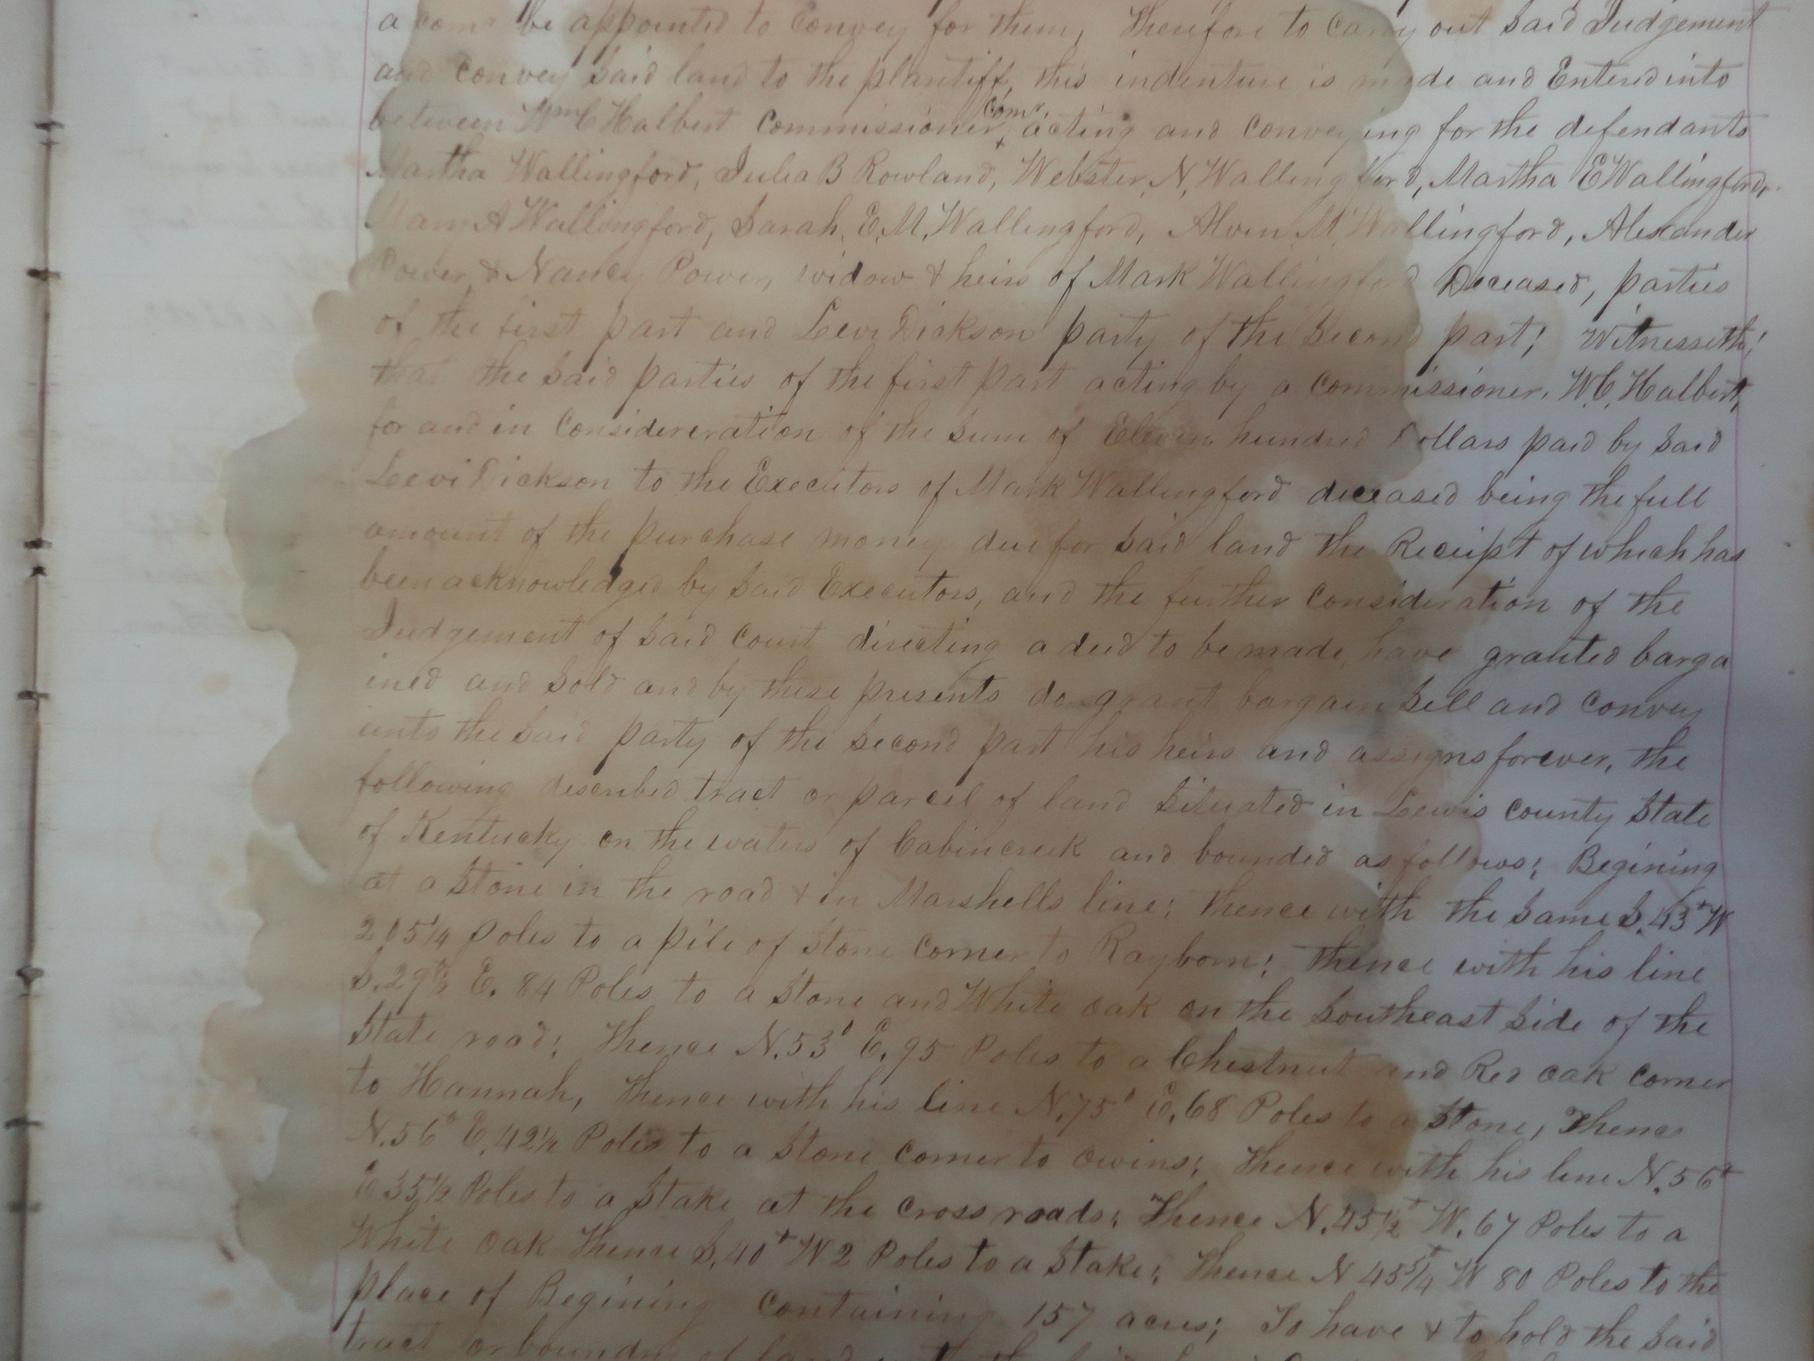 a comr be appointed to convey for them, Therefore to carry out said Judgement
and convey said land to the plantiff, this indenture is made and Entered into
between Wm C Halbert Commissioner, comr acting and conveying for the defendants
Martha Wallingford, Julia B Rowland, Webster N. Wallingford, Martha E Wallingford,
Mary A Wallingford, Sarah. E. M. Wallingford, Alven M. Wallingford, Alexander
Power & Nancy Power, widow & heirs of Mark Wallingford Deceased, parties
of the first part and Levi Dickson party of the second part; Witnesseth;
that the said parties of the first part acting by a commissioner. W. C. Halbert,
for and in considereration of the sum of Eleven hundred Dollars paid by said
Levi Dickson to the Executors of Mark Wallingford deceased being the full
amount of the purchase money due for said land the Receipt of which has
been acknowledged by said Executors, and the further consideration of the
Judgement of said court directing a deed to be made, have granted barga
ined and sold and by these presents do grant bargain sell and convey
unto the said party of the second part his heirs and assigns forever, the
following described tract or parcel of land situated in Lewis county State
of Kentucky on the waters of Cabincreek and bounded as follows; Begining
at a Stone in the road & in Marshells line; thence with the same S. 43° W
205 1/4 Poles to a pile of Stone corner to Rayborn; thence with his line
S. 29 1/2 E. 84 Poles to a Stone and White oak on the Southeast side of the
State road; Thence N. 53° E. 95 Poles to a Chestnut and Red oak corner
to Hannah, Thence with his line N. 75° E. 68 Poles to a Stone, Thence
N. 56° E. 42 1/2 Poles to a Stone corner to Owins; Thence with his line N. 56°
E 35 1/2 Poles to a Stake at the cross roads; Thence N. 45 1/2° W. 67 Poles to a
White oak Thence S. 40° W 2 Poles to a Stake; Thence N 45 3/4 W 80 Poles to the
place of Begining containing 157 acres; To have & to hold the said
tract or boundry of land